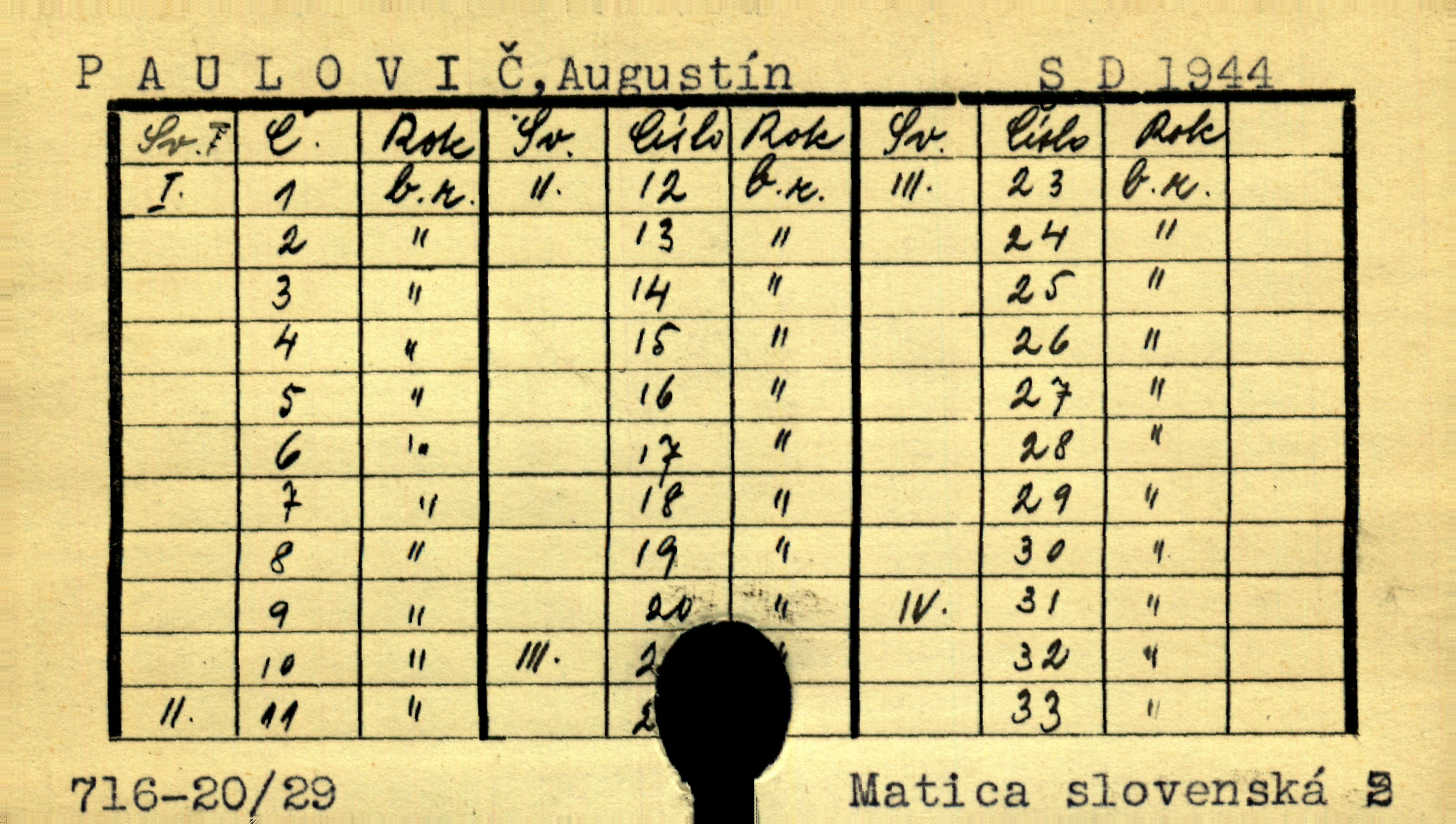 PAULOVIČ,Augustín SD 1944
Sv. Č. Rok Sv. Číslo Rok Sv. Číslo Rok
I. 1 b.r. II. 12 b.r. III. 23 b.r.
2 " 13 " 24 "
3 " 14 " 25 "
4 " 15 " 26 "
5 " 16 " 27 "
6 " 17 " 28 "
7 " 18 " 29 "
8 " 19 " 30 "
9 " 20 " IV. 31 "
10 " III. 32 "
II. 11 " 33 "
716-20/29 Matica slovenská